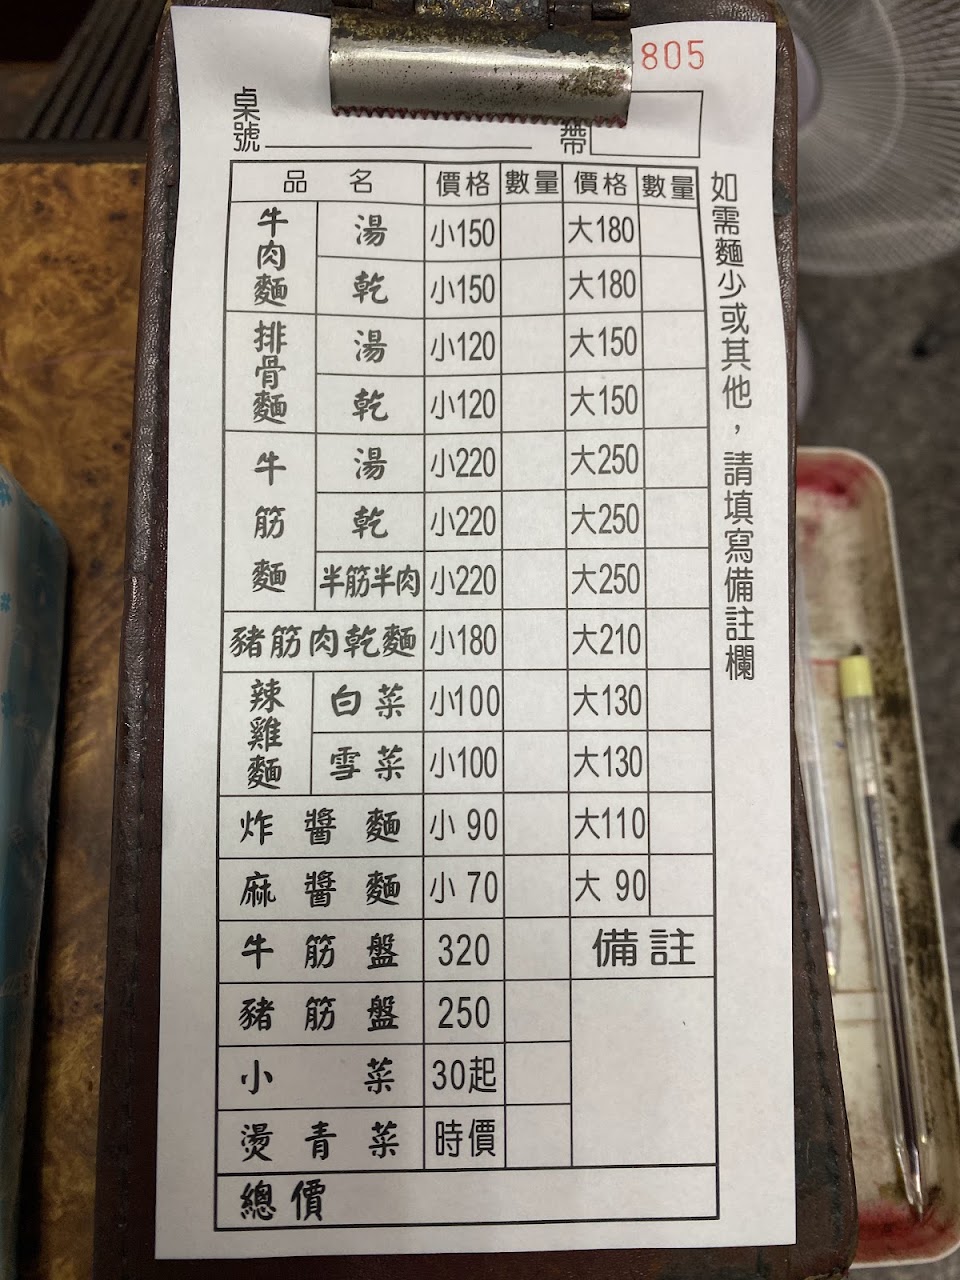 805
桌號
帶
品名 價格 數量 價格 數量
牛肉麵 湯 小150 大180
乾 小150 大180
排骨麵 湯 小120 大150
乾 小120 大150
牛筋麵 湯 小220 大250
乾 小220 大250
半筋半肉 小220 大250
豬筋肉乾麵 小180 大210
辣雞麵 白菜 小100 大130
雪菜 小100 大130
炸醬麵 小90 大110
麻醬麵 小70 大90
牛筋盤 320 備註
豬筋盤 250
小菜 30起
燙青菜 時價
總價
如需麵少或其他，請填寫備註欄